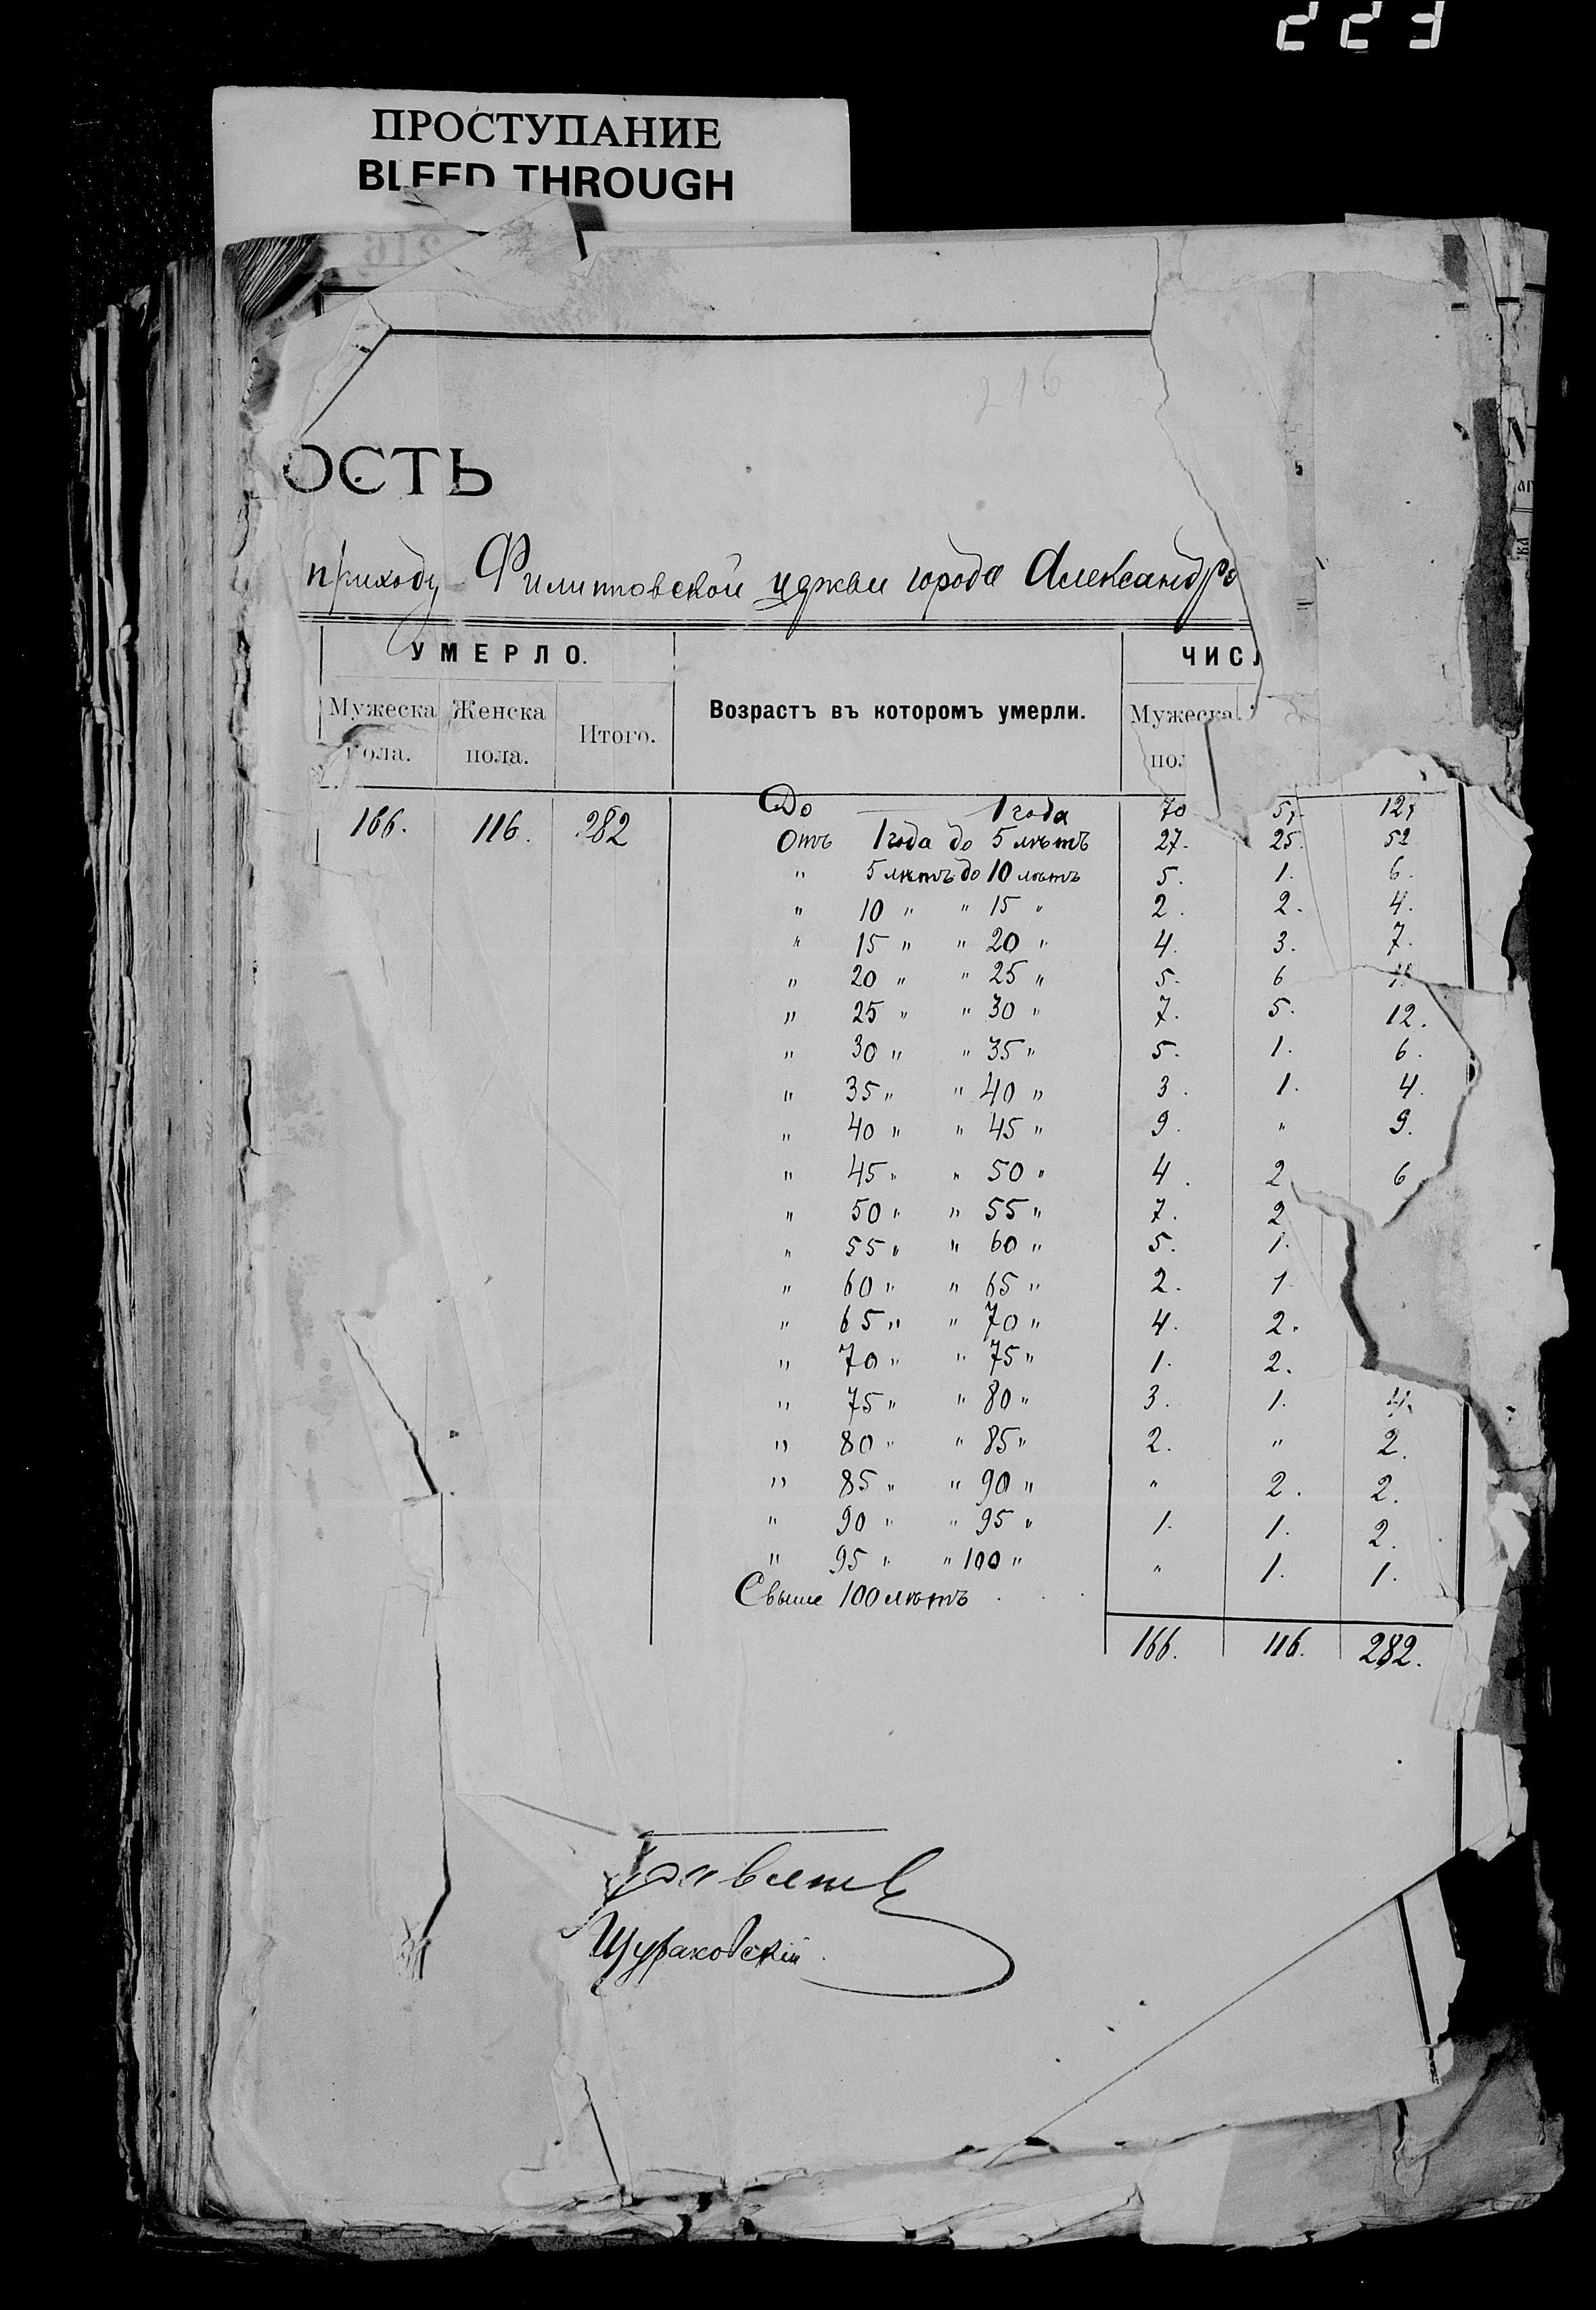 223
ПРОСТУПАНИЕ
BLEED THROUGH
216
216
ОСТЬ
приходу Филипповской церкви города Александро
УМЕРЛО. ЧИСЛ
Мужеска Женска Итого. Возрастъ въ которомъ умерли. Мужеска
пола. пола. пол
166. 116. 282 До 1 года 70
Отъ 1 года до 5 лѣтъ 27. 25. 52
" 5 лѣтъ до 10 лѣтъ 5. 1. 6.
" 10 " " 15 " 2. 2. 4.
" 15 " " 20 " 4. 3. 7.
" 20 " " 25 " 5. 6
" 25 " " 30 " 7. 5. 12.
" 30 " " 35 " 5. 1. 6.
" 35 " " 40 " 3. 1. 4.
" 40 " " 45 " 9. " 9.
" 45 " " 50 " 4. 2 6
" 50 " " 55 " 7. 2
" 55 " " 60 " 5. 1.
" 60 " " 65 " 2. 1
" 65 " " 70 " 4. 2.
" 70 " " 75 " 1. 2.
" 75 " " 80 " 3. 1. 4.
" 80 " " 85 " 2. " 2.
" 85 " " 90 " " 2. 2.
" 90 " " 95 " 1. 1. 2.
" 95 " " 100 " " 1. 1.
Свыше 100 лѣтъ
166. 116. 282.